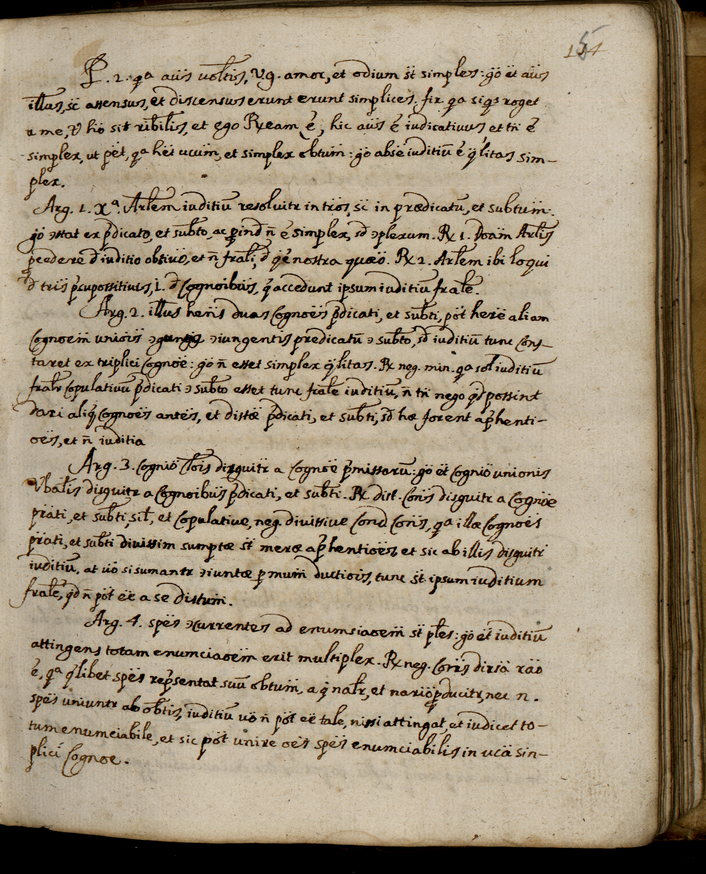 151
P. 2. qª aūs volt̄is, V.g. amor, et odium st̄ simples: gö ēt aūs
illus, sc̄ assensus, et discensus erunt erunt simplices. fir. qa siqs roget
a me, V hō sit risibilis, et ego Rx eam ē, hic aūs ē iudicativus et tn̄ ē
simplex, ut pēt, qa hēt ucum, et simplex obtum: gö absē iuditiū ē q̄litas sim-
plex.
Arg. 1. Xª. Arlem iuditiū resolvitr in tros, sc̄ in prædicatū, et subtum:
gö ɔstat ex p̄dicato, et subto, ac p̄ind n̄ ē simplex, sd ɔplexum. Rx 1. Arlis
p̄cedere d̄ iuditio obtivo, et n̄ frali, d̄ q̄ ē nostra quæō. Rx 2. Arlem ibi loqui
d̄ triis p̄cuposititiuis, i. d̄ Cognoibus, q̄ accedunt ipsum iuditiū frale.
Arg. 2. illus hens duas Cognoēs p̄dicati, et subti, pōt herē aliam
Cognoem unionis ɔiungentis predicatū ɔ subto, sd iuditiū tunc cons-
taret ex triplici Cognoē: gö n̄ esset simplex q̄litas. Rx neg. min. qa sol iuditiū
fralr copulativū p̄dicati ɔ subto esset tunc frale iuditiū, n̄ tn̄ nego qd possint
dari aliq̄ Cognoēs antēs, et distæ p̄dicati, et subti, sd hæ forent ap̄henti-
oēs, et n̄ iuditia
Arg. 3. Cognio tōis disguitr a Cognoē p̄missarū: gö ēt Cognio unionis
Vbalis disguitr a Cognoibus p̄dicati, et subti. Rx dist. Cons disguitr a Cognoē
prati, et subti, sil, et copulative, neg. divissive Cond Cons, qa illæ Cognoēs
prati, et subti divissim sumptæ st̄ meræ ap̄hentioēs, et sic ab illis disguitr
iuditiū, at vō si sumantr ɔiuntæ p mum ductiois, tunc st̄ ipsum iuditium
frale, qd n̄ pōt eē a se distum.
Arg. 4. spēs ɔcurrentes ad enumsiaoem st̄ ples: gö ēt iuditiū
attingens totam enumciaoem erit multiplex. Rx neg. Cons dirsa rao
ē, qa q̄libet spēs rep̄sentat suū obtum, a q̄ nalr, et nario p̄ducitr, nec n.
spēs uniuntr ab obtis, iuditiū vō n̄ pōt eē tale, nissi attingat, et iudicet to-
tum enumciabile, et sic pōt unire oēs spēs enumciabilis in ucā sin-
plici Cognoe.